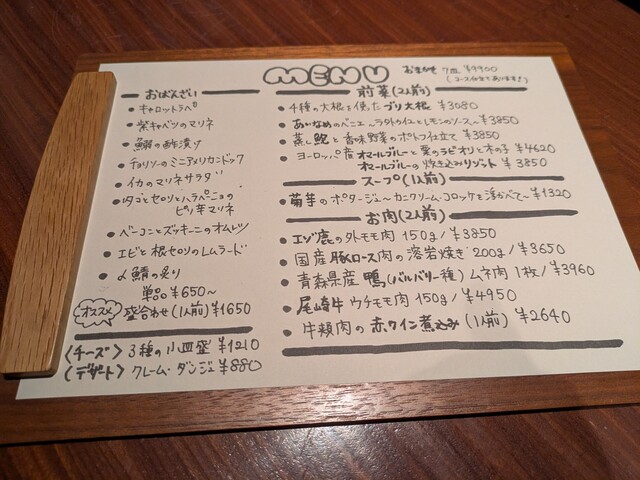 MENU
おまかせ 7皿 ¥9900
(コース仕立てであります!)
おばんざい
• キャロットラペ
• 紫キャベツのマリネ
• 鰯の酢漬け
• チョリソーのミニアメリカンドック
• イカのマリネサラダ
• タコとセロリとハラペーニョの
ピリ辛マリネ
• ベーコンとズッキーニのオムレツ
• エビと根セロリのレムラード
• 〆鯖の炙り
単品 ¥650~
オススメ 盛合わせ(1人前)¥1650
〈チーズ〉 3種の小皿盛 ¥1210
〈デザート〉 クレーム・ダンジュ ¥880
前菜(2人前)
• 4種の大根を使た ブリ大根 ¥3080
• あいなめのベニエ ~ラタトゥイユとレモンのソース~ ¥3850
• 蒸し鮑と香味野菜のポトフ仕立て ¥3850
• ヨーロッパ産 オマールブルーと栗のラビオリと木の子 ¥4620
オマールブルーの炊き込みリゾット ¥3850
スープ(1人前)
• 菊芋のポタージュ ~カニクリームコロッケを浮かべて~ ¥1320
お肉(2人前)
• エゾ鹿の外モモ肉 150g/¥3850
• 国産豚ロース肉の溶岩焼き 200g/¥3650
• 青森県産 鴨(バルバリー種)ムネ肉 1枚/¥3960
• 尾崎牛ウチモモ肉 150g/¥4950
• 牛頬肉の赤ワイン煮込み(1人前)¥2640